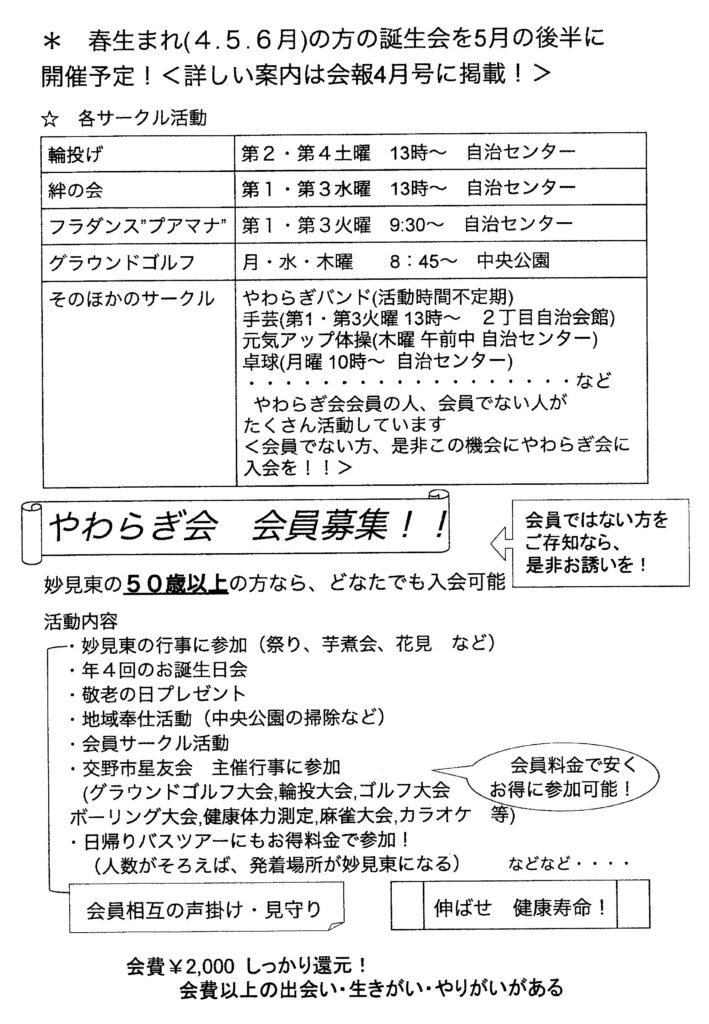 ＊　春生まれ(４.５.６月)の方の誕生会を5月の後半に
開催予定！＜詳しい案内は会報4月号に掲載！＞
☆　各サークル活動
輪投げ　第２・第４土曜　13時～　自治センター
絆の会　第１・第３水曜　13時～　自治センター
フラダンス”プアマナ”　第１・第３火曜　9:30～　自治センター
グラウンドゴルフ　月・水・木曜　８：45～　中央公園
そのほかのサークル　やわらぎバンド(活動時間不定期)
手芸(第1・第3火曜 13時～　２丁目自治会館)
元気アップ体操(木曜 午前中 自治センター)
卓球(月曜 10時～ 自治センター)
・・・・・・・・・・・・・・・・・・など
やわらぎ会会員の人、会員でない人が
たくさん活動しています
＜会員でない方、是非この機会にやわらぎ会に
入会を！！＞
やわらぎ会　会員募集！！
会員ではない方を
ご存知なら、
是非お誘いを！
妙見東の５０歳以上の方なら、どなたでも入会可能
活動内容
・妙見東の行事に参加（祭り、芋煮会、花見　など）
・年４回のお誕生日会
・敬老の日プレゼント
・地域奉仕活動（中央公園の掃除など）
・会員サークル活動
・交野市星友会　主催行事に参加
(グラウンドゴルフ大会,輪投大会,ゴルフ大会
ボーリング大会,健康体力測定,麻雀大会,カラオケ　等)
会員料金で安く
お得に参加可能！
・日帰りバスツアーにもお得料金で参加！
（人数がそろえば、発着場所が妙見東になる）　などなど・・・・
会員相互の声掛け・見守り
伸ばせ　健康寿命！
会費￥2,000 しっかり還元！
会費以上の出会い・生きがい・やりがいがある